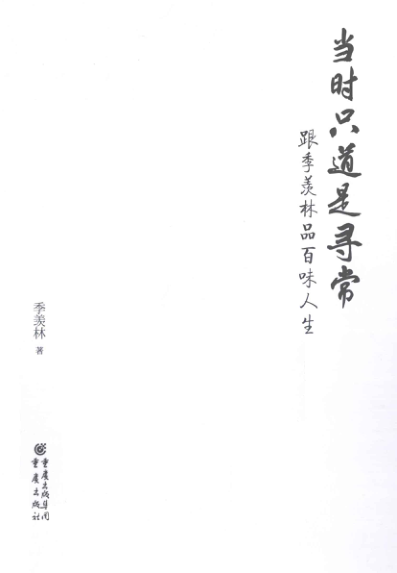 当时只道是寻常
跟季羡林品百味人生
季羡林 著
重庆出版集团
重庆出版社